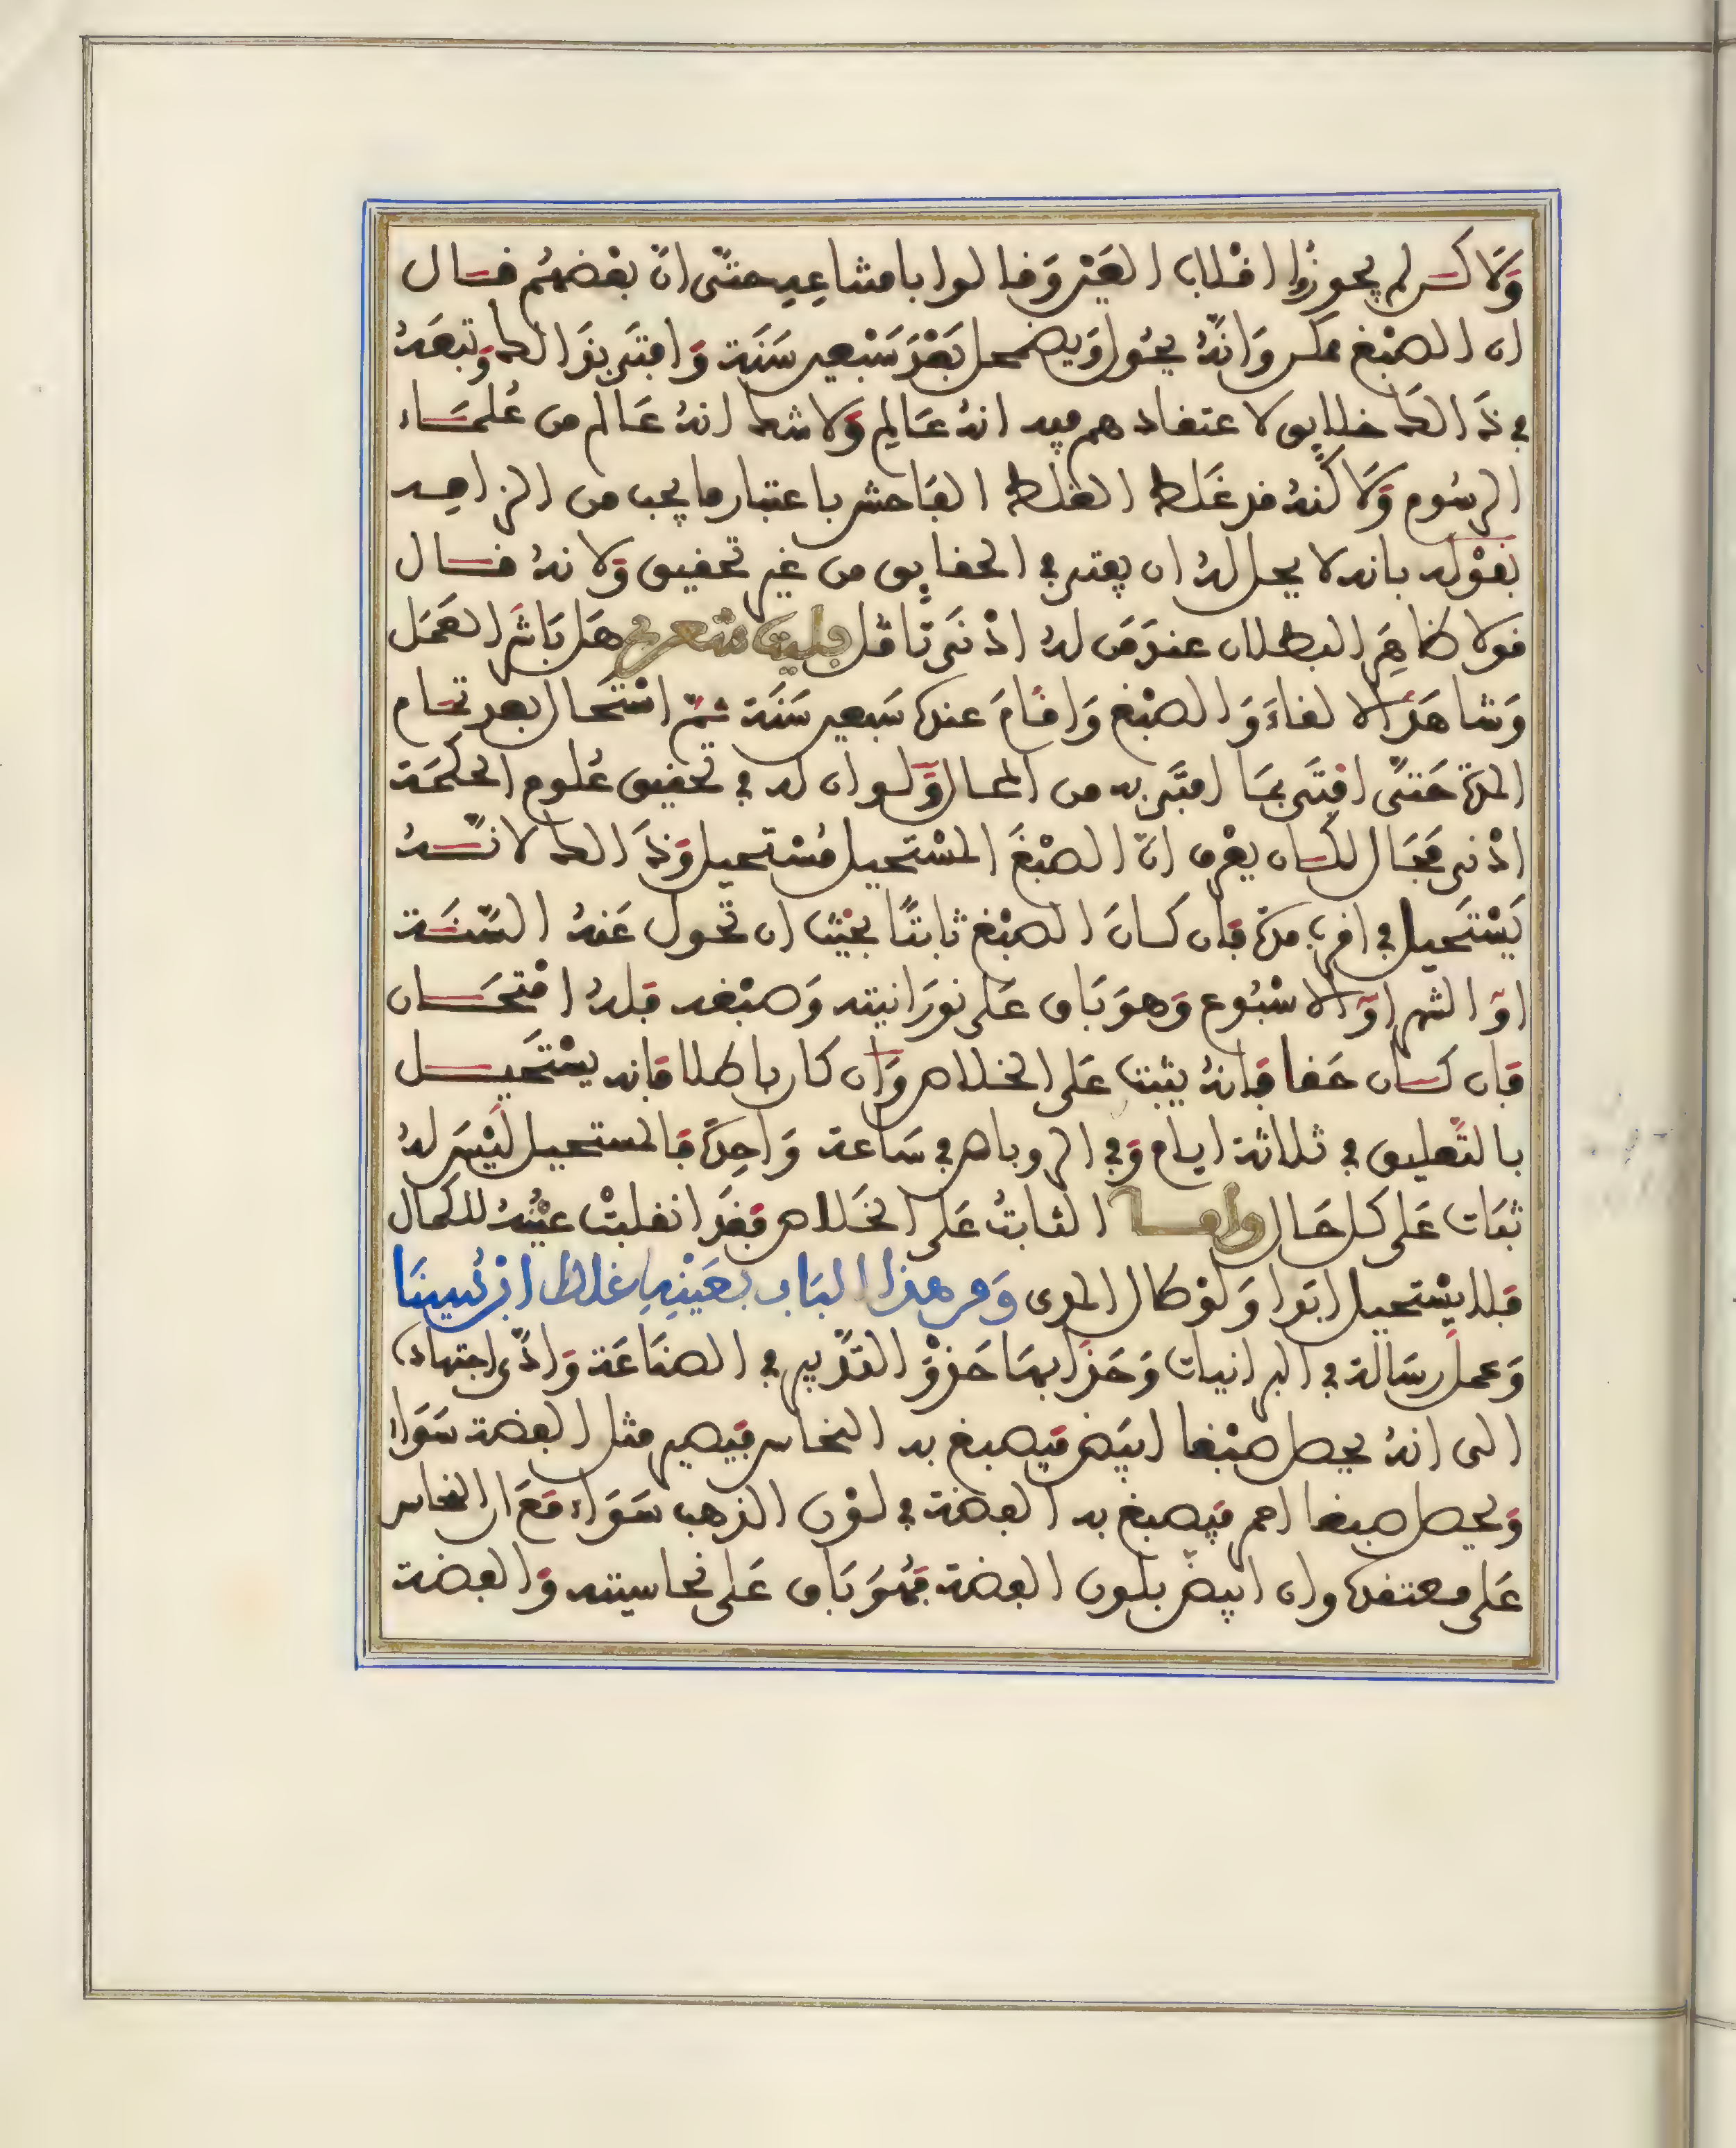 ولاكن لم يجوزوا انقلاب العين وقالوا بامتناعه حتى ان بعضهم قال
ان الصبغ ممكن وانه يحول ويضمحل بعد سبعين سنة وافتى بذالك وتبعه
في ذالك خلايق لاعتقادهم فيه انه عالم ولا شك انه عالم من علماء
الرسوم ولاكنه قد غلط الغلط الفاحش باعتبار ما يجب من الزاهد
بقوله بانه لا يحل له ان يفتي في الحقايق من غير تحقيق ولانه قال
قولا ظاهر البطلان عند من له ادنى تامل فليت شعري هل باشر العمل
وشاهد الالقاء والصبغ واقام عنده سبعين سنة ثم استحال بعد تمام
المدة حتى افتى بما افتى به من المحال ولو ان له في تحقيق علوم الحكمة
ادنى مجال لكان يعرف ان الصبغ المستحيل مستحيل وذالك لانه
يستحيل في اقرب مدة فان كان الصبغ ثابتا بحيث ان تحول عنه السنة
او الشهر او الاسبوع وهو باق على نورانيته وصبغه فله امتحان
فان كان حقا فانه يثبت على الخلاص وان كان باطلا فانه يستحيل
بالتعليق في ثلاثة ايام وفي الروباص في ساعة واحدة فالمستحيل ليس له
ثبات على كل حال واما الثابت على الخلاص فقد انقلبت عينه للكمال
فلا يستحيل ابدا ولو طال المدى ومن هذا الباب بعينه غلط ابن سينا
وعمل رسالة في البرانيات وحذا بها حذو التدبير في الصناعة وادى اجتهاده
الى انه يحصل صبغا ابيض فيصبغ به النحاس فيصير مثل الفضة سواء
ويحصل صبغا احمر فيصبغ به الفضة في لون الذهب سواء مع ان النحاس
على معتقده وان ابيض بلون الفضة فهو باق على نحاسيته والفضة